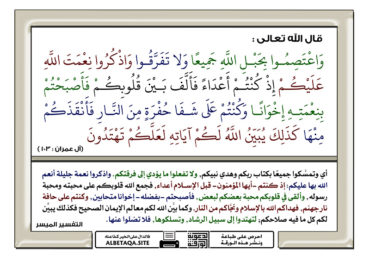 قال الله تعالى :
وَاعْتَصِمُوا بِحَبْلِ اللَّهِ جَمِيعًا وَلَا تَفَرَّقُوا وَاذْكُرُوا نِعْمَتَ اللَّهِ
عَلَيْكُمْ إِذْ كُنْتُمْ أَعْدَاءً فَأَلَّفَ بَيْنَ قُلُوبِكُمْ فَأَصْبَحْتُمْ
بِنِعْمَتِهِ إِخْوَانًا وَكُنْتُمْ عَلَى شَفَا حُفْرَةٍ مِنَ النَّارِ فَأَنْقَذَكُمْ
مِنْهَا كَذَلِكَ يُبَيِّنُ اللَّهُ لَكُمْ آيَاتِهِ لَعَلَّكُمْ تَهْتَدُونَ
(آل عمران : ١٠٣)
أي وتمسَّكوا جميعًا بكتاب ربكم وهدي نبيكم، ولا تفعلوا ما يؤدي إلى فرقتكم. واذكروا نعمة جليلة أنعم
الله بها عليكم: إذ كنتم -أيها المؤمنون- قبل الإسلام أعداء، فجمع الله قلوبكم على محبته ومحبة
رسوله، وألقى في قلوبكم محبة بعضكم لبعض، فأصبحتم -بفضله- إخوانا متحابين، وكنتم على حافة
نار جهنم، فهداكم الله بالإسلام ونجَّاكم من النار. وكما بيَّن الله لكم معالم الإيمان الصحيح فكذلك يبيِّن
لكم كل ما فيه صلاحكم؛ لتهتدوا إلى سبيل الرشاد، وتسلكوها، فلا تضلوا عنها.
التفسير الميسر
احرص على طباعة
ونشر هذه الورقة
فالدال على الخير كفاعله
ALBETAQA.SITE